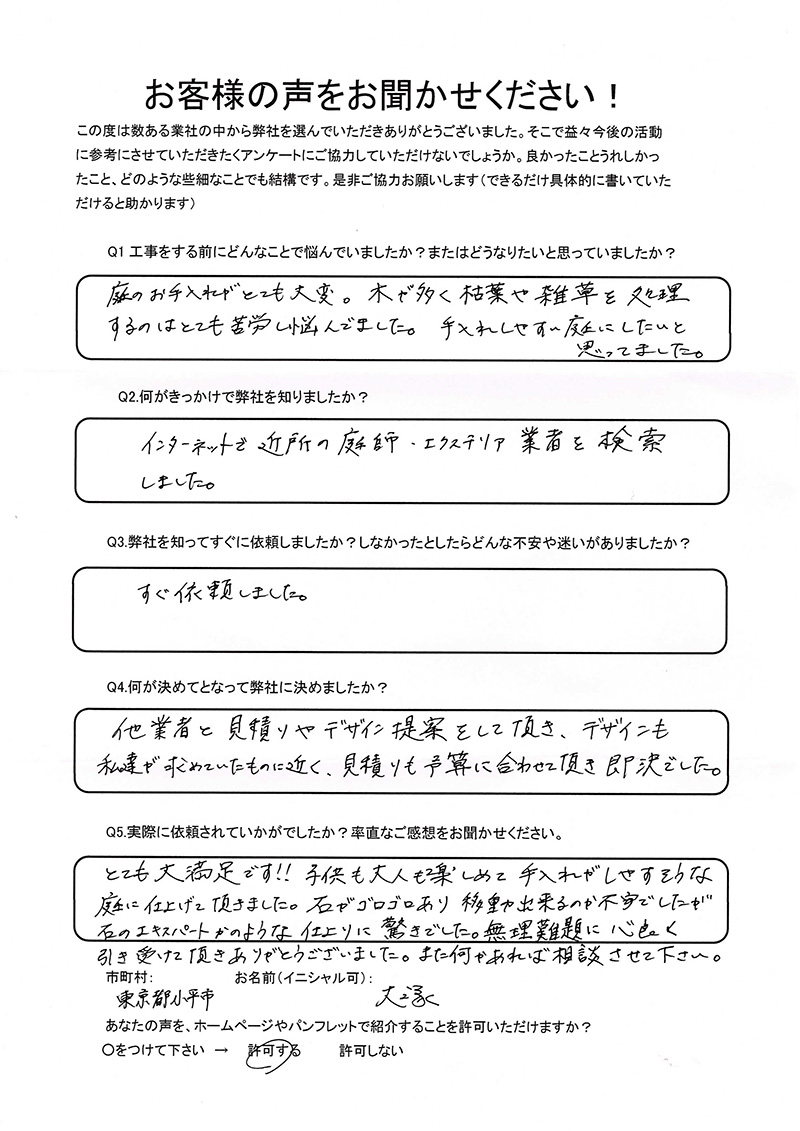 お客様の声をお聞かせください！
この度は数ある業社の中から弊社を選んでいただきありがとうございました。そこで益々今後の活動
に参考にさせていただきたくアンケートにご協力していただけないでしょうか。良かったことうれしかっ
たこと、どのような些細なことでも結構です。是非ご協力お願いします（できるだけ具体的に書いていた
だけると助かります）
Q1 工事をする前にどんなことで悩んでいましたか？またはどうなりたいと思っていましたか？
庭のお手入れがとても大変。木が多く枯葉や雑草を処理
するのはとても苦労し悩んでました。手入れしやすい庭にしたいと
思ってました。
Q2.何がきっかけで弊社を知りましたか？
インターネットで近所の庭師・エクステリア業者を検索
しました。
Q3.弊社を知ってすぐに依頼しましたか？しなかったとしたらどんな不安や迷いがありましたか？
すぐ依頼しました。
Q4.何が決めてとなって弊社に決めましたか？
他業者と見積りやデザイン提案をして頂き、デザインも
私達が求めていたものに近く、見積りも予算に合わせて頂き即決でした。
Q5.実際に依頼されていかがでしたか？率直なご感想をお聞かせください。
とても大満足です!! 子供も大人も楽しめて手入れがしやすそうな
庭に仕上げて頂きました。石がゴロゴロあり移動が出来るのか不安でしたが
石のエキスパートかのような仕上りに驚きでした。無理難題に心良く
引き受けて頂きありがとうございました。また何かあれば相談させて下さい。
市町村： お名前（イニシャル可）：
東京都小平市
あなたの声を、ホームページやパンフレットで紹介することを許可いただけますか？
〇をつけて下さい → 許可する 許可しない